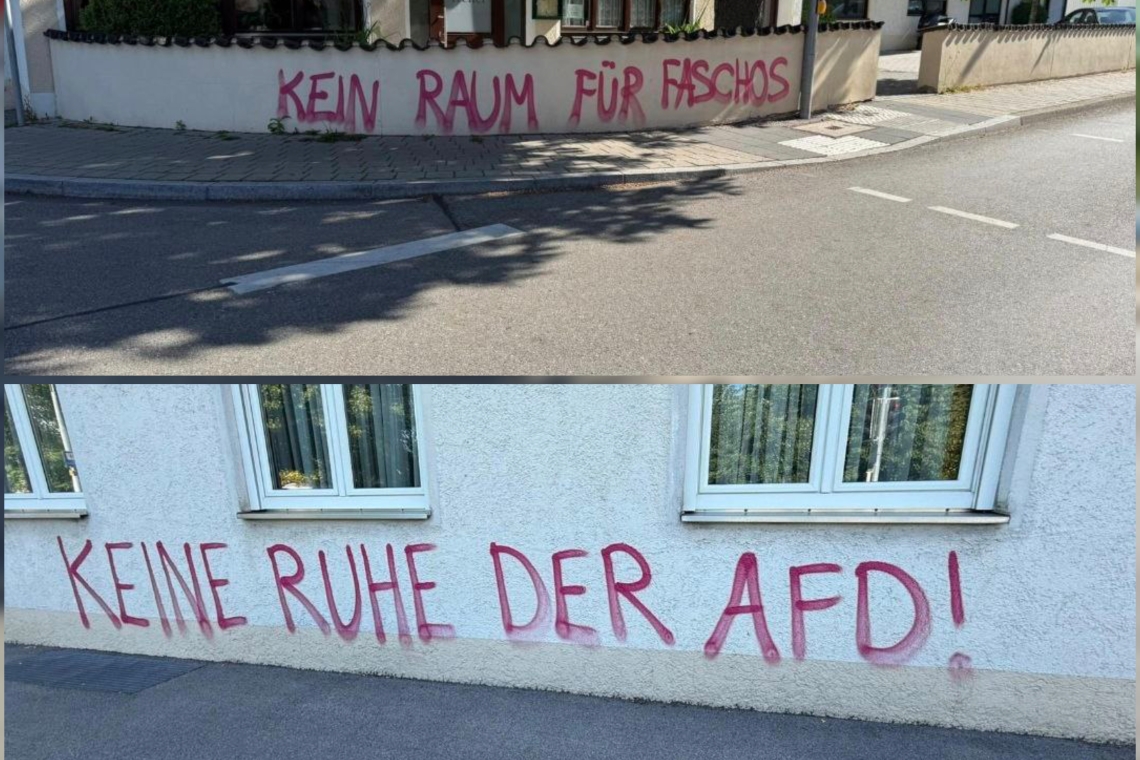 KEIN RAUM FÜR FASCHOS
KEINE RUHE DER AFD!